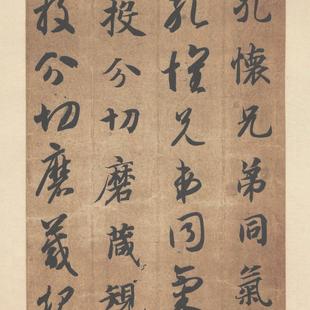 孔懷兄弟同氣
孔懷兄弟同氣
投分切磨箴規
投分切磨箴規